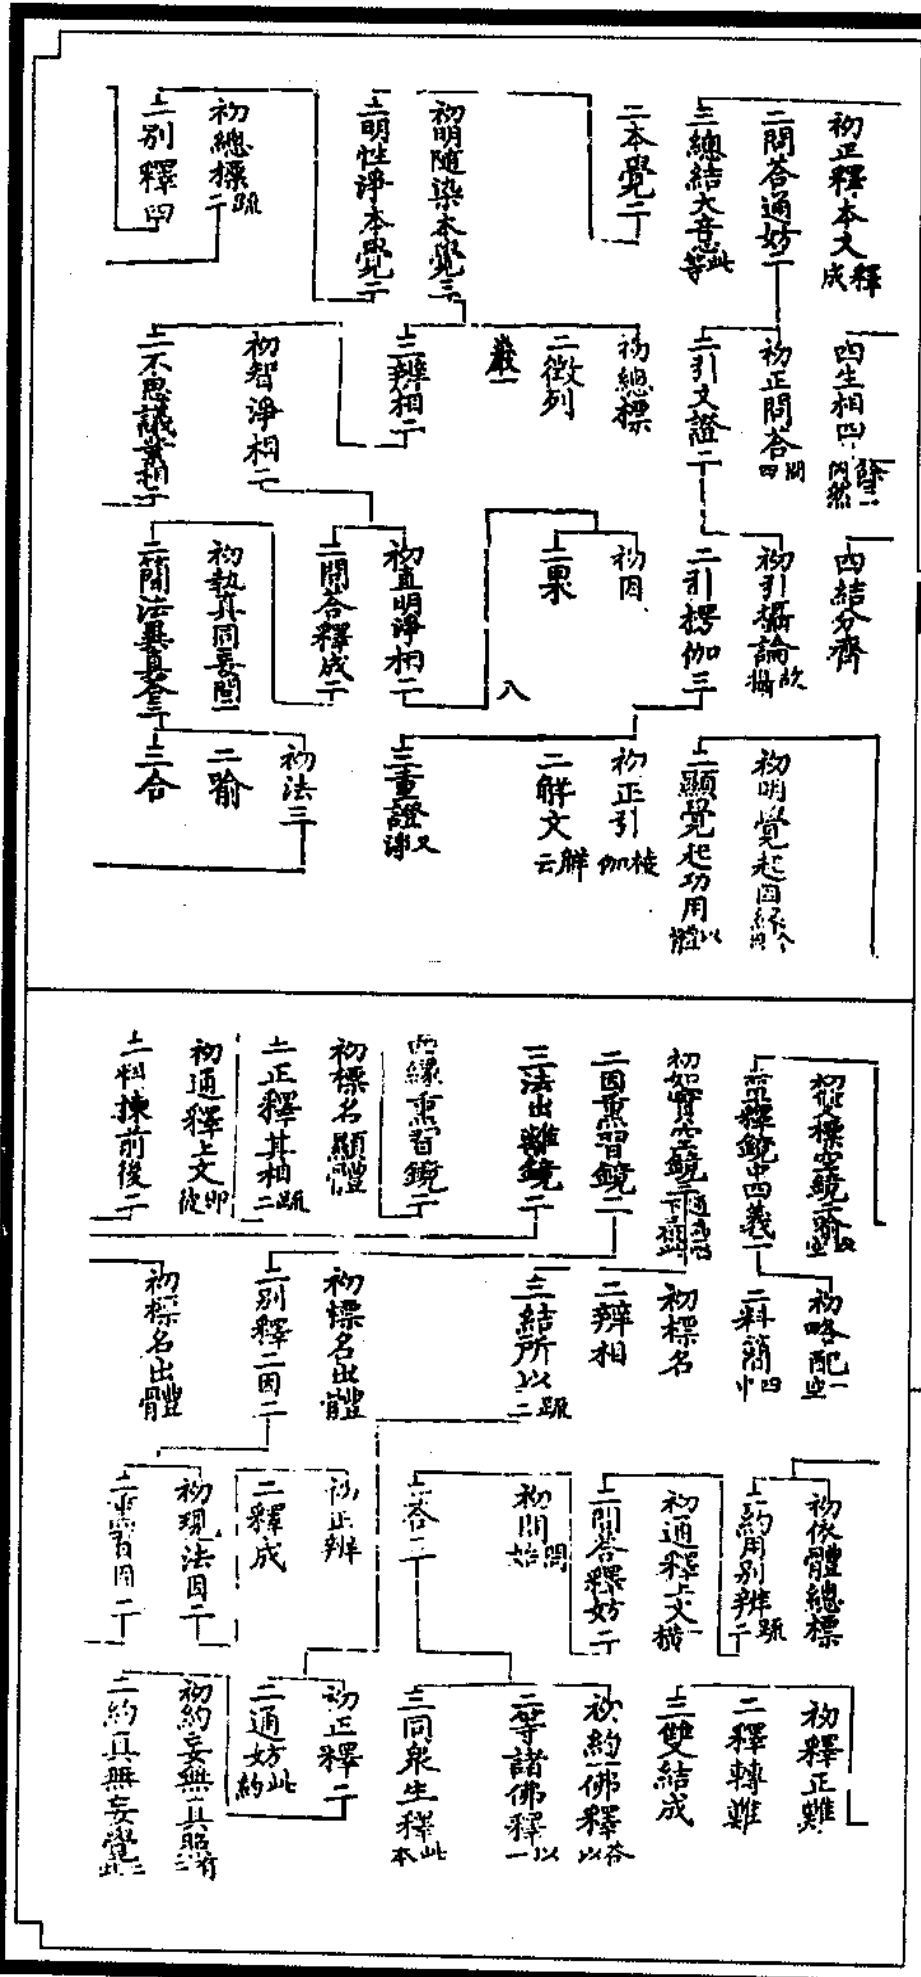 初正釋本文 釋成
二問答通妨二
三總結大意 此等
二本覺二
初明隨染本覺三
二明性淨本覺二
初總標 疏二
二別釋四
四生相四
初正問答 問四
二引文證二
初總標
二徵列
三辨相二
初智淨相二
二不思議業相二
四結分齊
初引攝論 故攝
二引楞伽三
初因
二果
八
初直明淨相二
二問答釋成二
初執真同妄問一
二簡法異真答三
初明覺起因緣
二顯覺起功用 以體
初正引 楞伽
二解文 解云
三重證 又
初法三
二喻
三合
初雙標空鏡二喻
二並釋鏡中四義二
初如實空鏡三
二因熏習鏡二
三法出離鏡二
四緣熏習鏡二
初標名顯體
二正釋其相 疏二
初通釋上文 即從
二料揀前後二
初略配 一空
二料簡 四中
初標名
二辨相
三結所以 疏二
初標名出體
二別釋二因二
初標名出體
初依體總標
二約用別辨 疏二
初通釋上文 一橫
二問答釋妨二
初問 問始
二答三
初正辨
二釋成
初現法因二
二熏習因二
初釋正難
二釋轉難
三雙結成
初約一佛釋 答以
二等諸佛釋 以一
三同眾生釋 此本
初正釋二
二通妨 此約
初約妄無真照
二約真無妄覺